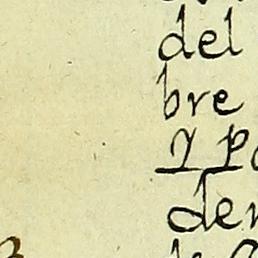 del
bre
y Po
den